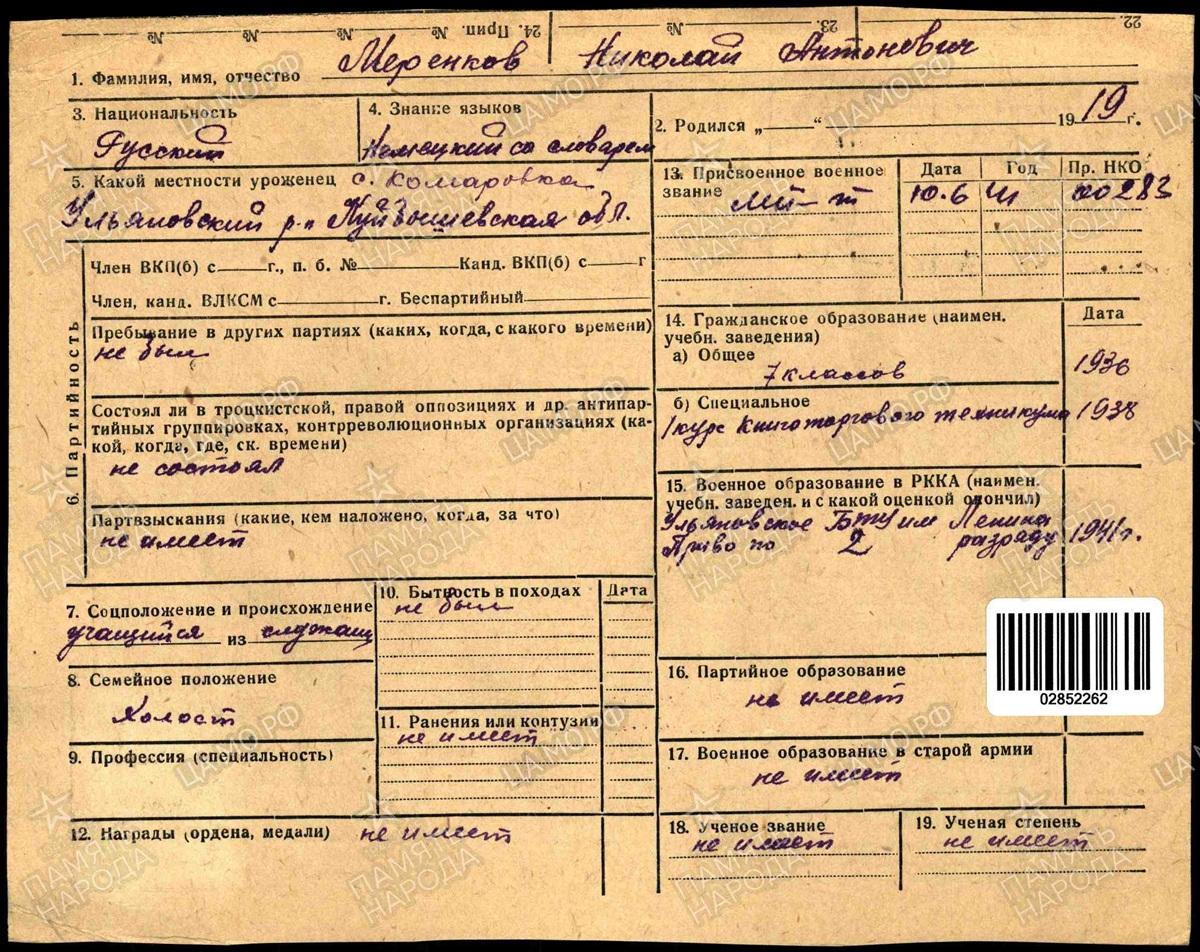 № № № № 24. Прип. № 23. 22.
1. Фамилия, имя, отчество Меренков Николай Антонович
3. Национальность
Русский
4. Знание языков
Немецкий со словарем
2. Родился „ “ 1919 г.
5. Какой местности уроженец с. Комаровка
Ульяновский р-н Куйбышевская обл.
13. Присвоенное военное
звание
Дата Год Пр. НКО
мл-т 10.6 41 00283
6. Партийность
Член ВКП(б) с г., п. б. № Канд. ВКП(б) с г
Член, канд. ВЛКСМ с г. Беспартийный
Пребывание в других партиях (каких, когда, с какого времени)
не был
Состоял ли в троцкистской, правой оппозициях и др. антипар-
тийных группировках, контрреволюционных организациях (ка-
кой, когда, где, ск. времени)
не состоял
Партвзыскания (какие, кем наложено, когда, за что)
не имеет
14. Гражданское образование (наимен.
учебн. заведения)
Дата
а) Общее
7 классов 1936
б) Специальное
1 курс Книготоргового техникума 1938
15. Военное образование в РККА (наимен.
учебн. заведен. и с какой оценкой окончил)
Ульяновское БТУ им Ленина
по 2 разряду 1941 г.
7. Соцположение и происхождение
учащийся из служащ
8. Семейное положение
Холост
9. Профессия (специальность)
10. Бытность в походах Дата
не был
11. Ранения или контузии
не имеет
12. Награды (ордена, медали) не имеет
16. Партийное образование
не имеет
02852262
17. Военное образование в старой армии
не имеет
18. Ученое звание
не имеет
19. Ученая степень
не имеет
ПАМЯТЬ
НАРОДА
ЦАМО.РФ